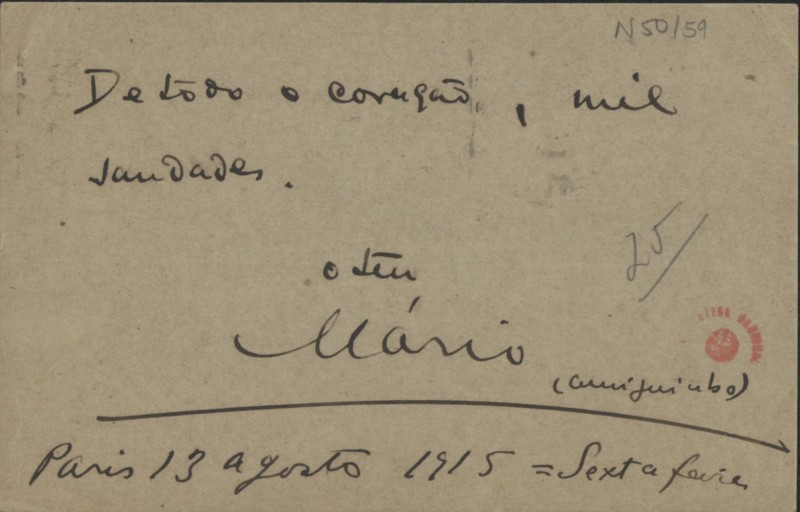 N50/59
De todo o coração, mil
saudades.
o teu
25/
Mário
(amiguinho)
Paris 13 agosto 1915 = Sexta feira